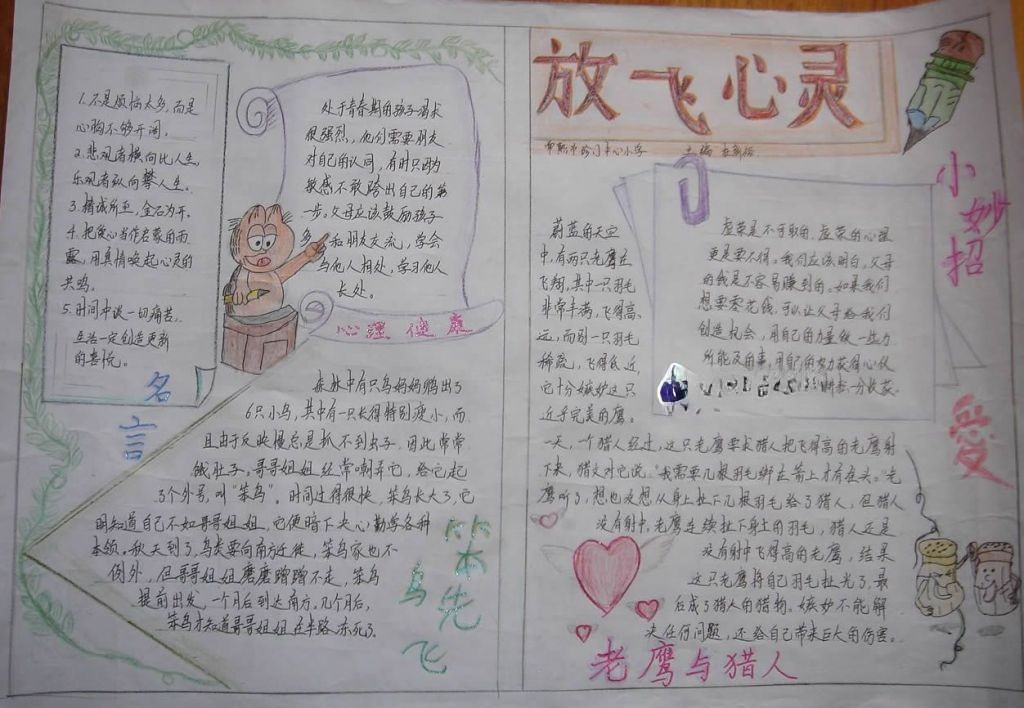 放飞心灵
小妙招
1.不是烦恼太多,而是
心胸不够开阔。
2.悲观者横向比人生,
乐观者纵向攀人生。
3.精诚所至,金石为开。
4.把爱心当作启蒙的雨
露,用真情唤起心灵的
共鸣。
5.时间冲淡一切痛苦,
生活一定创造更新
的喜悦。
名言
处于青春期的孩子渴求
很强烈,他们需要朋友
对自己的认同,有时只因为
敏感不敢跨出自己的第
一步。父母应该鼓励孩子
多和朋友交流,学会
与他人相处,学习他人
长处。
心理健康
森林中有只鸟妈妈孵出了
6只小鸟,其中有一只长得特别瘦小,而
且由于反映慢总是抓不到虫子,因此常常
饿肚子。哥哥姐姐经常嘲弄它,给它起
了个外号,叫“笨鸟”。时间过得很快,笨鸟长大了,它
明知道自己不如哥哥姐姐,它便暗下决心勤学各种
本领。秋天到了,鸟类要向南方迁徙,笨鸟家也不
例外,但哥哥姐姐磨磨蹭蹭不走,笨鸟
提前出发,一个月后到达南方。几个月后,
笨鸟才知道哥哥姐姐在半路冻死了。
笨鸟先飞
虚荣是不可取的,虚荣的心理
更是要不得。我们应该明白,父母
的钱是不容易赚到的。如果我们
想要零花钱,可以让父母给我们
创造机会,用自己的力量做一些力
所能及的事,用自己的努力获得心仪
一分收获。
爱
蔚蓝的天空
中,有两只老鹰在
飞翔,其中一只羽毛
非常丰满,飞得高
远,而别一只羽毛
稀疏,飞得低近,
它十分嫉妒这只
近乎完美的鹰。
一天,一个猎人经过,这只老鹰要求猎人把飞得高的老鹰射
下来,猎人对它说:“我需要几根羽毛绑在箭上才有准头。”老
鹰听了,想也没想从身上扯下几根羽毛给了猎人,但猎人
没有射中,老鹰连续扯下身上的羽毛,猎人还是
没有射中飞得高的老鹰,结果
这只老鹰将自己羽毛扯光了,最
后成了猎人的猎物。嫉妒不能解
决任何问题,还给自己带来巨大的伤害。
老鹰与猎人